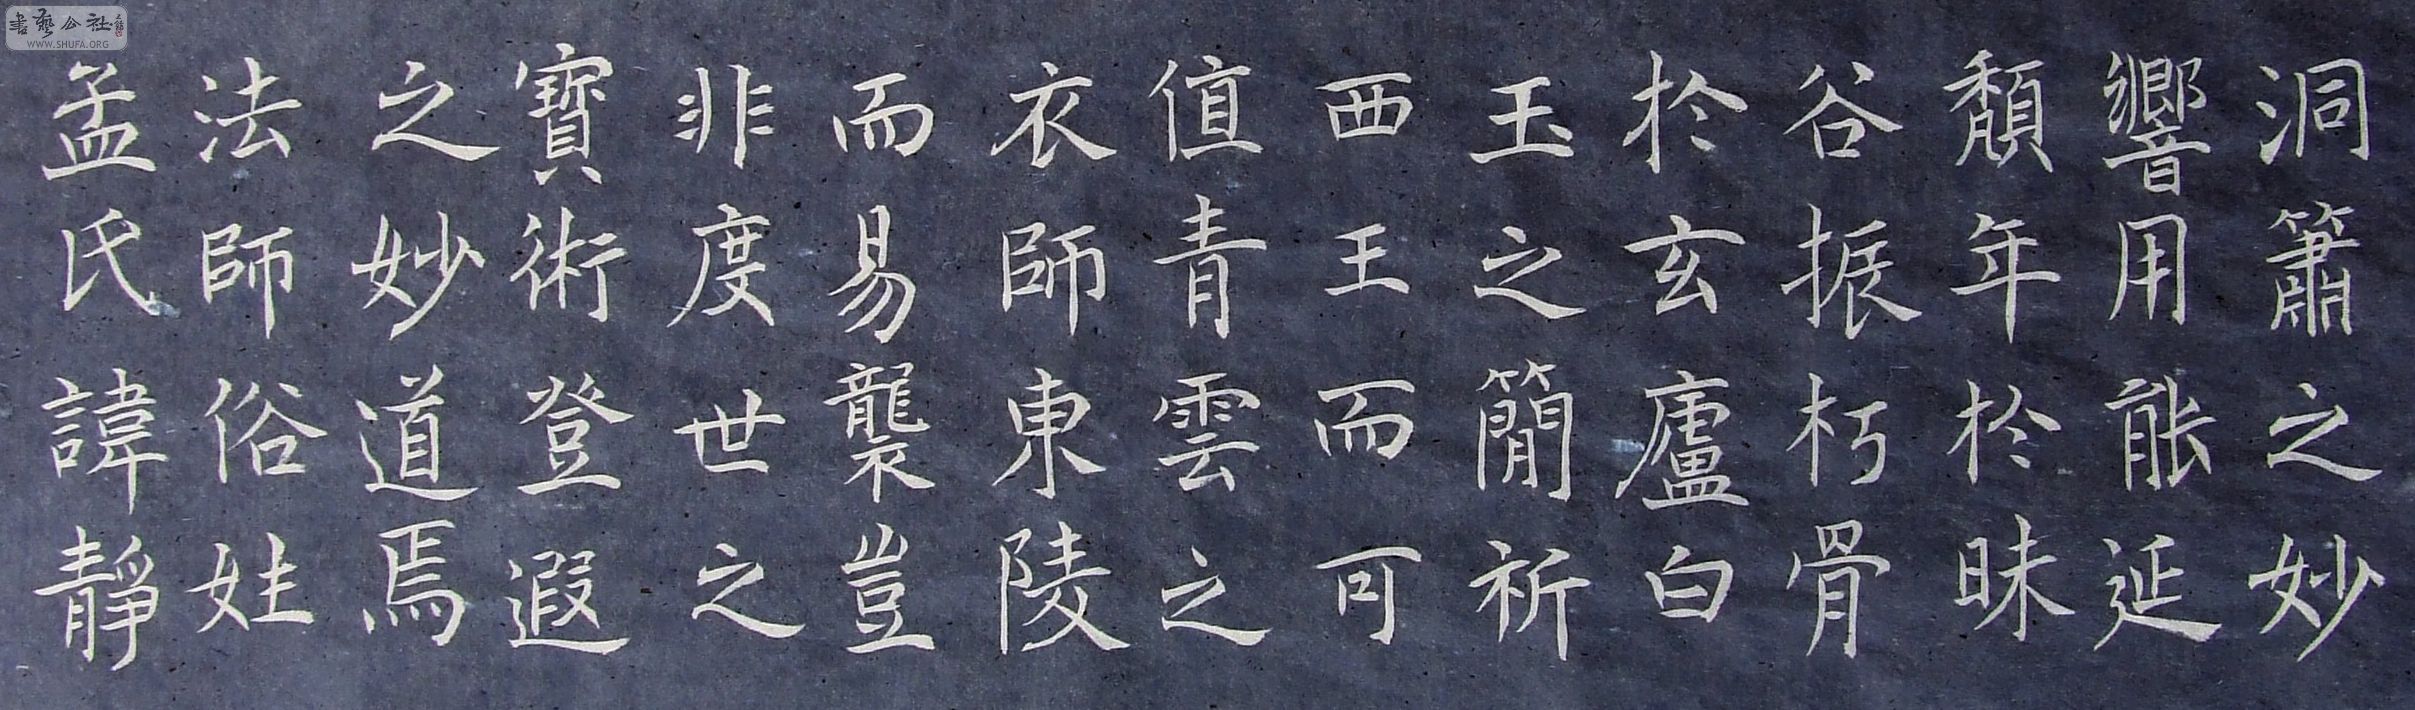 洞簫之妙
響用能延
頹年於昧
谷振朽骨
於玄廬白
玉之簡祈
西王而可
值青雲之
衣師東陵
而易襲豈
非度世之
寶術登遐
之妙道焉
法師俗姓
孟氏諱靜
書藝公社
WWW.SHUFA.ORG